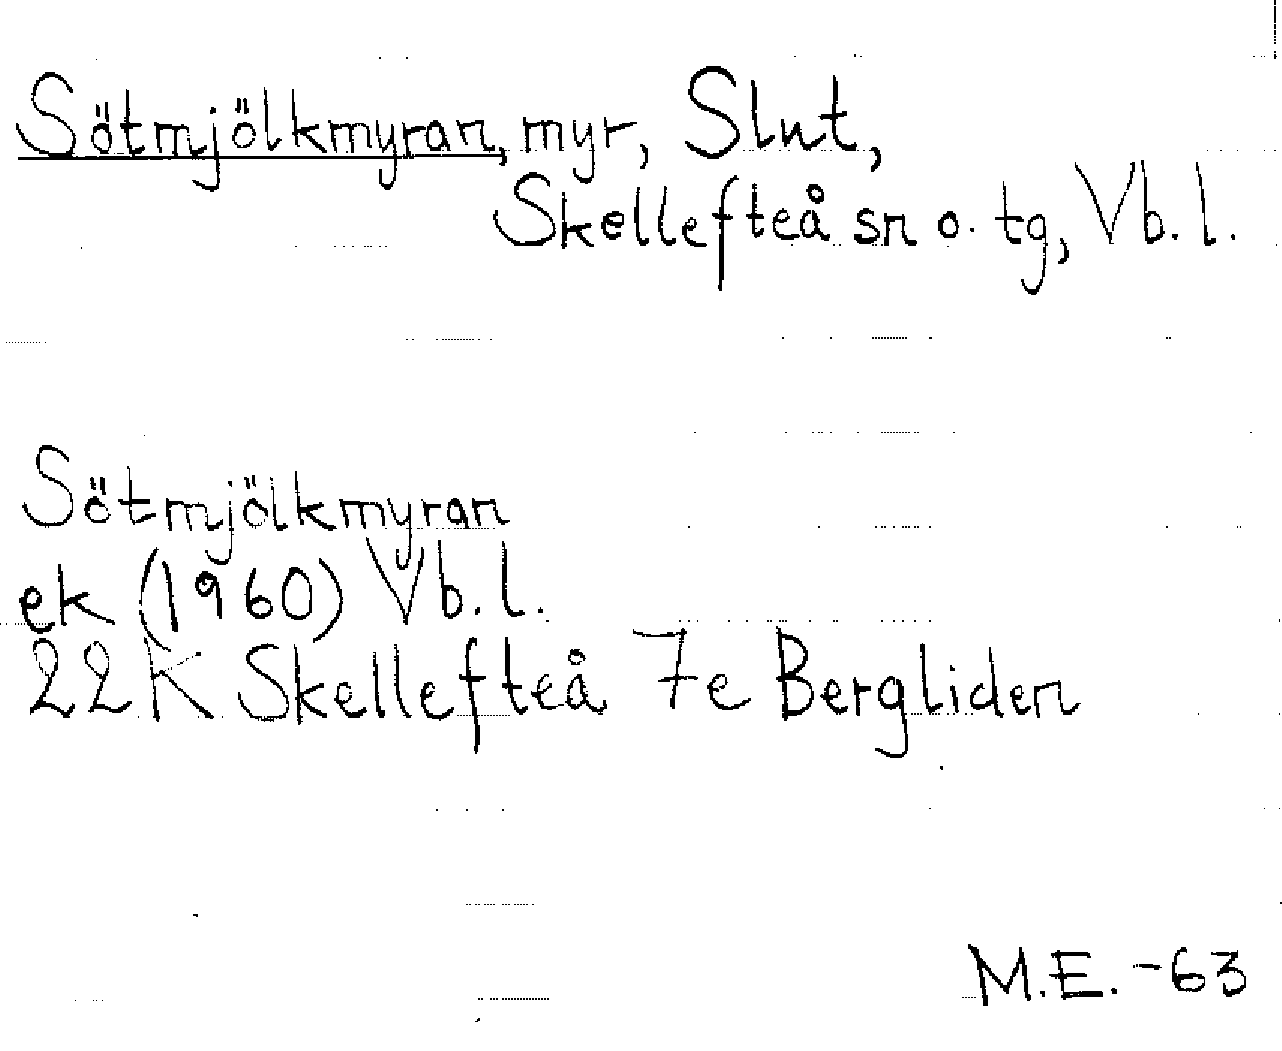 Sötmjölkmyran, myr, Slnt,
Skellefteå sn o. tg, Vb. l.
Sötmjölkmyran
ek (1960) Vb. l.
22K Skellefteå 7e Bergliden
M.E. -63